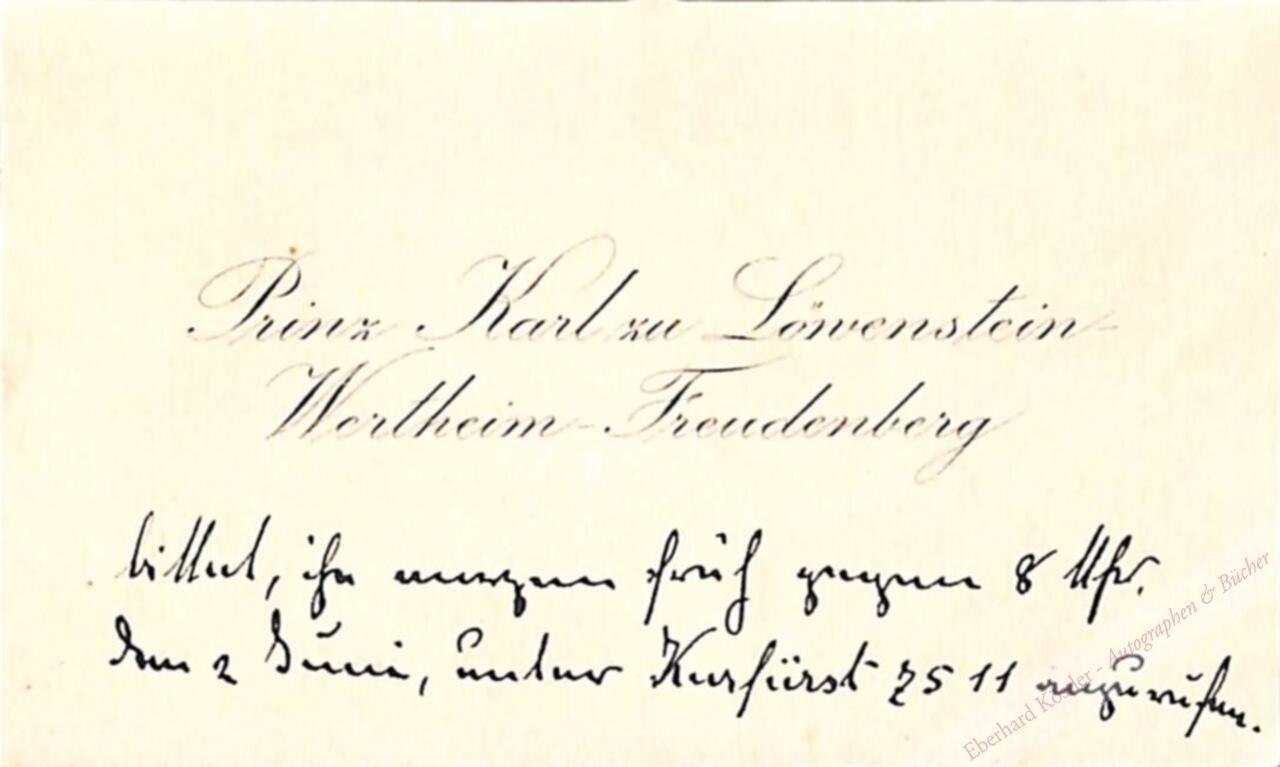 Prinz Karl zu Löwenstein-
Wertheim-Freudenberg
bittet, ihn morgen früh gegen 8 Uhr,
den 2 Juni, unter Kurfürst 7511 anzurufen.
Eberhard Köstler - Autographen & Bücher